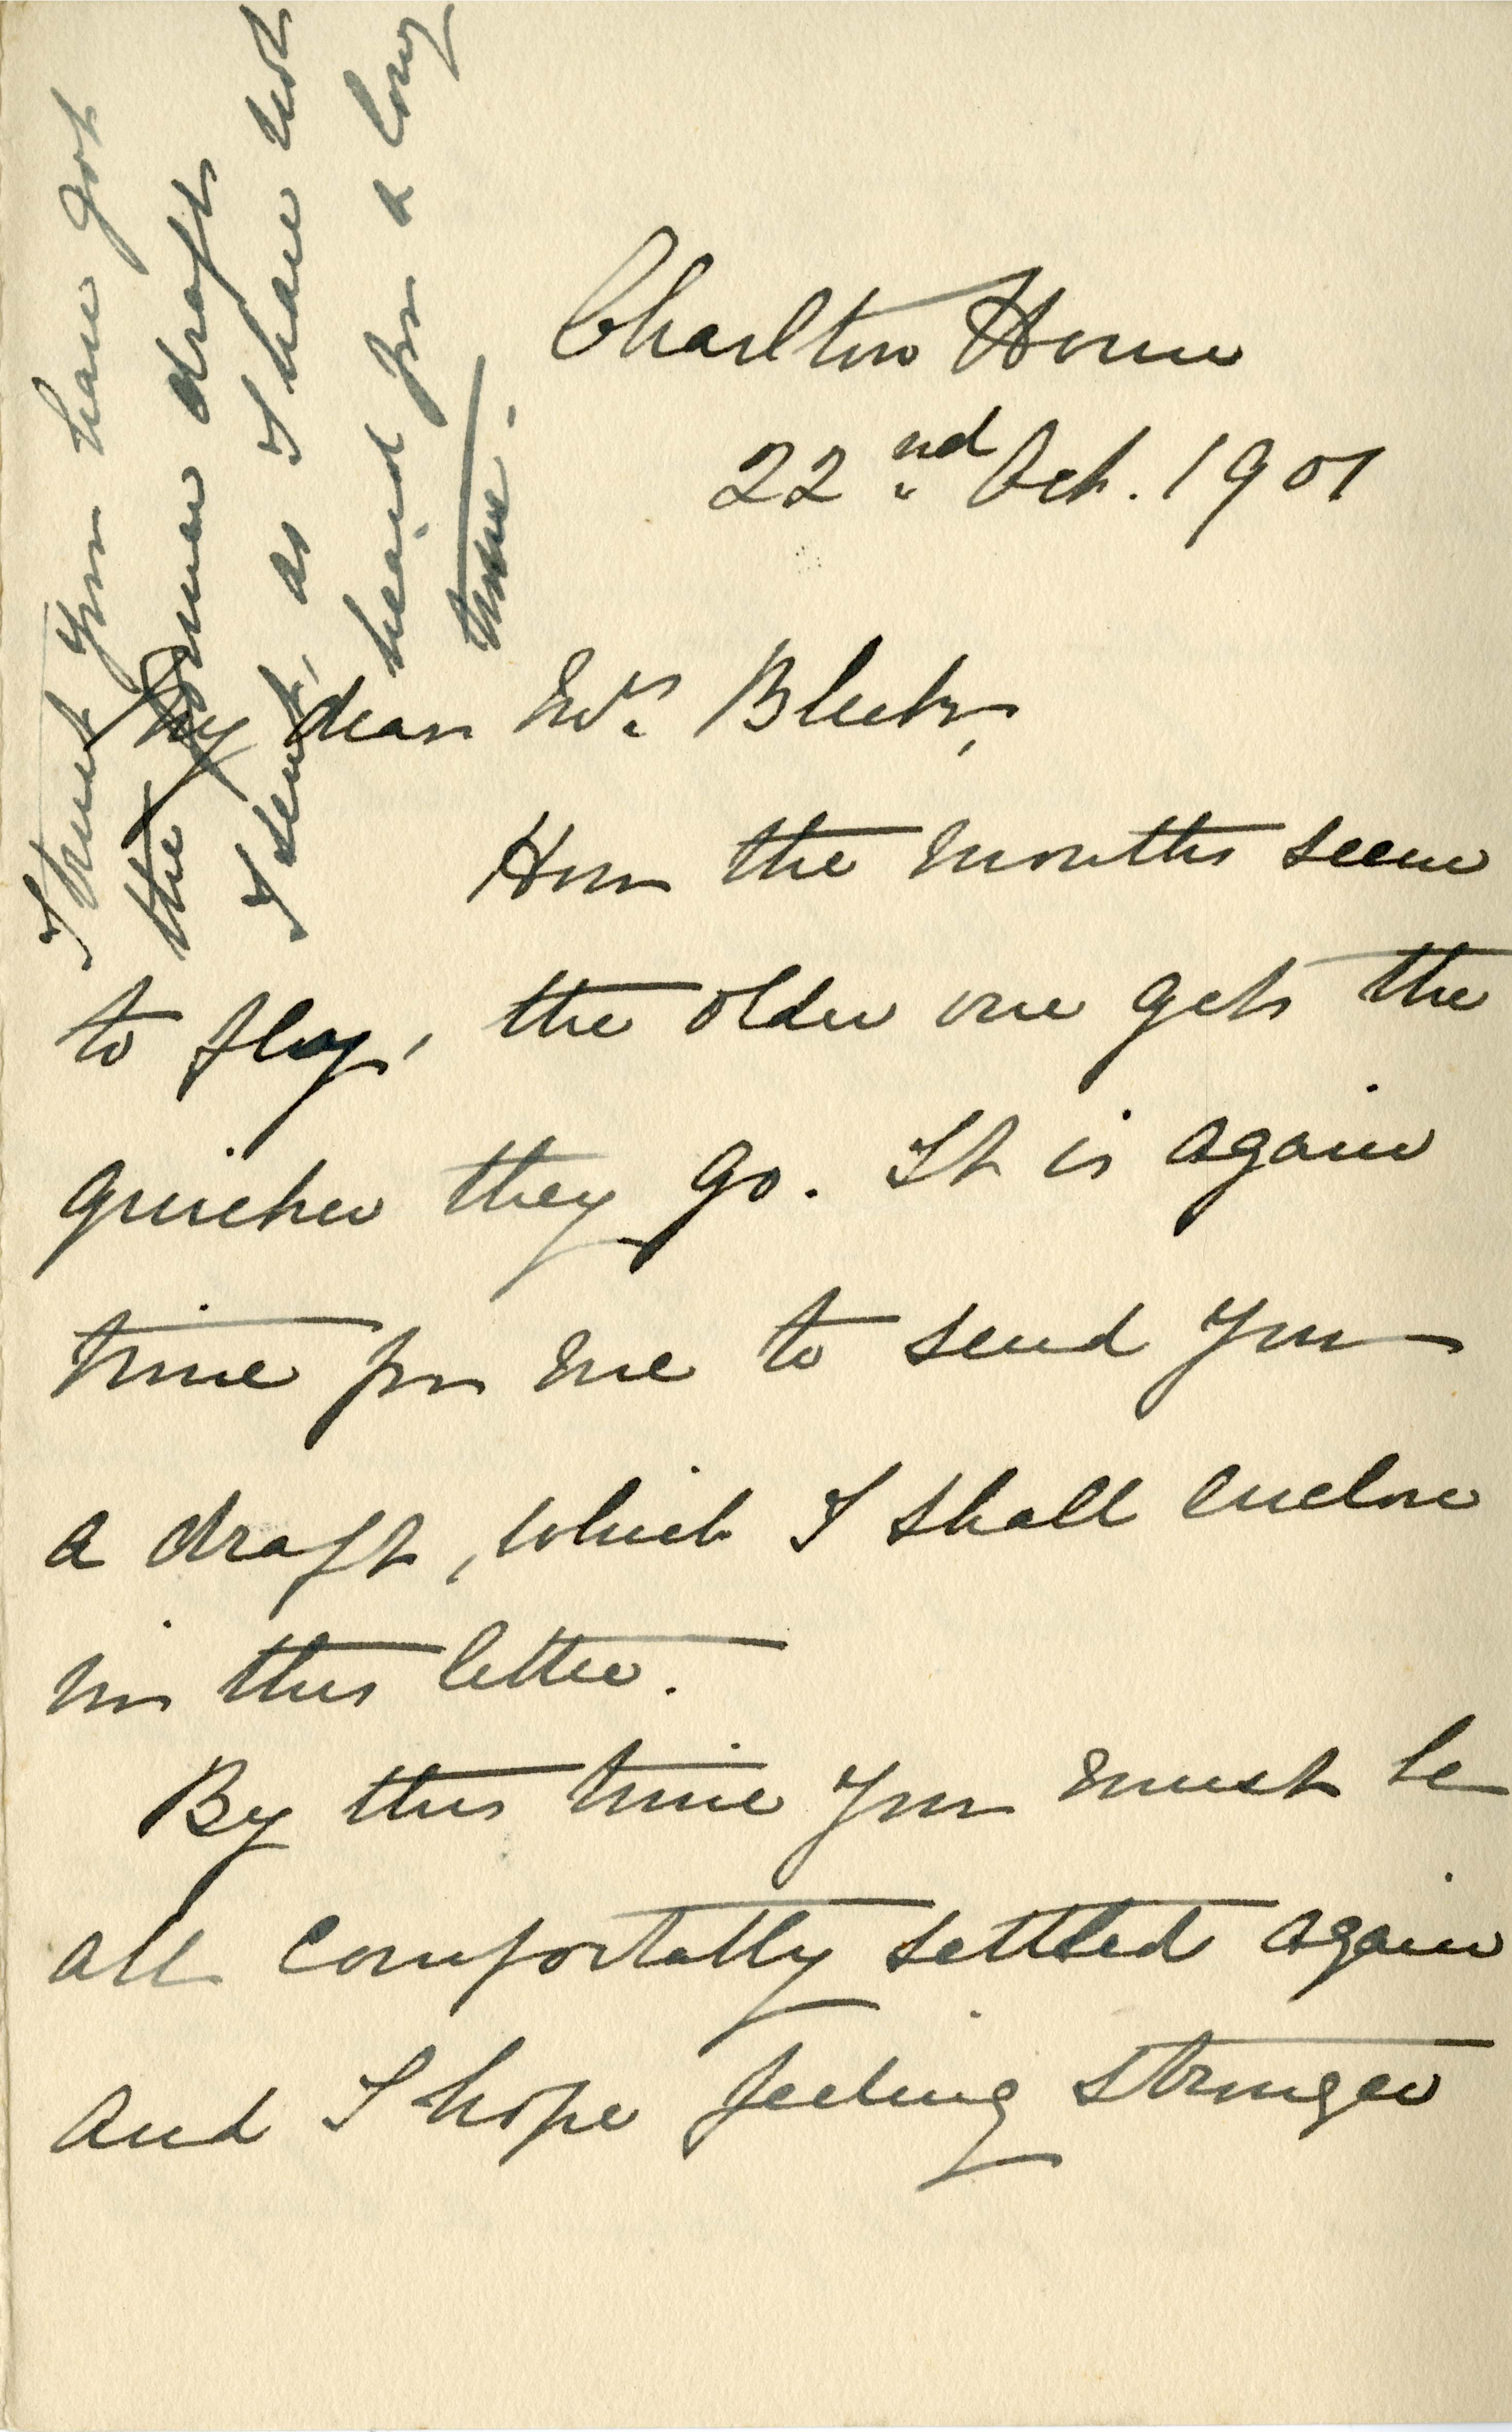 Charlton House
22nd Oct. 1901
My dear Mrs Bleek,
How the months seem
to fly, the older one gets the
quicker they go. It is again
time for me to send you
a draft, which I shall enclose
in this letter.
By this time you must be
all comfortably settled again
and I hope feeling stronger
I trust you have got
the former draft
I sent, as I have not
heard for a long
time.